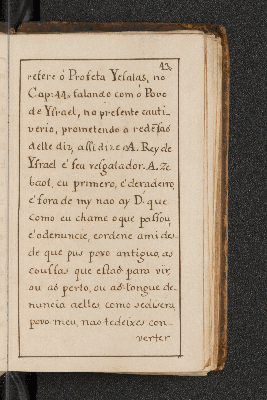 43
refere ó Profeta Yesaias, no
Cap: 44. falando com ó Povo
de Ysrael, no presente cauti-
verio, prometendo a redesaõ
delle diz, assi dize A. Rey de
Ysrael é seu resgatador. A. Ze
baot, eu primero, é deradeiro,
é fora de my naõ ay D. que
como eu chame o que passou
é o denuncie, e ordene a mi des-
de que pus povo antiguo, as
coussas que estaõ para vir,
ou aõ perto, ou aõ longue de-
nuncia a elles como se disera
povo meu, naõ te deixes con-
verter